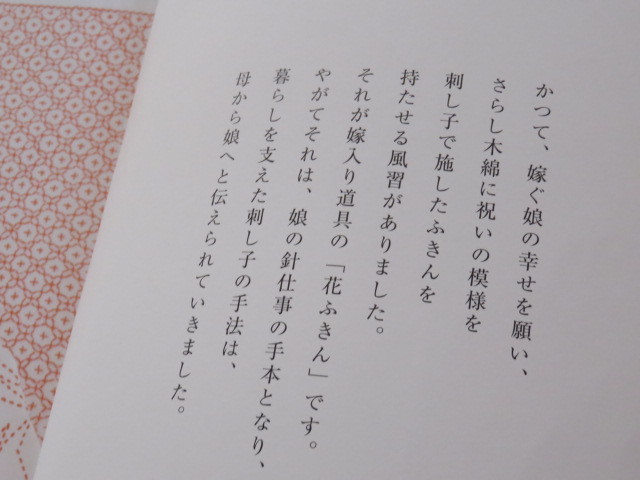 かつて、嫁ぐ娘の幸せを願い、
さらし木綿に祝いの模様を
刺し子で施したふきんを
持たせる風習がありました。
それが嫁入り道具の「花ふきん」です。
やがてそれは、娘の針仕事の手本となり、
暮らしを支えた刺し子の手法は、
母から娘へと伝えられていきました。